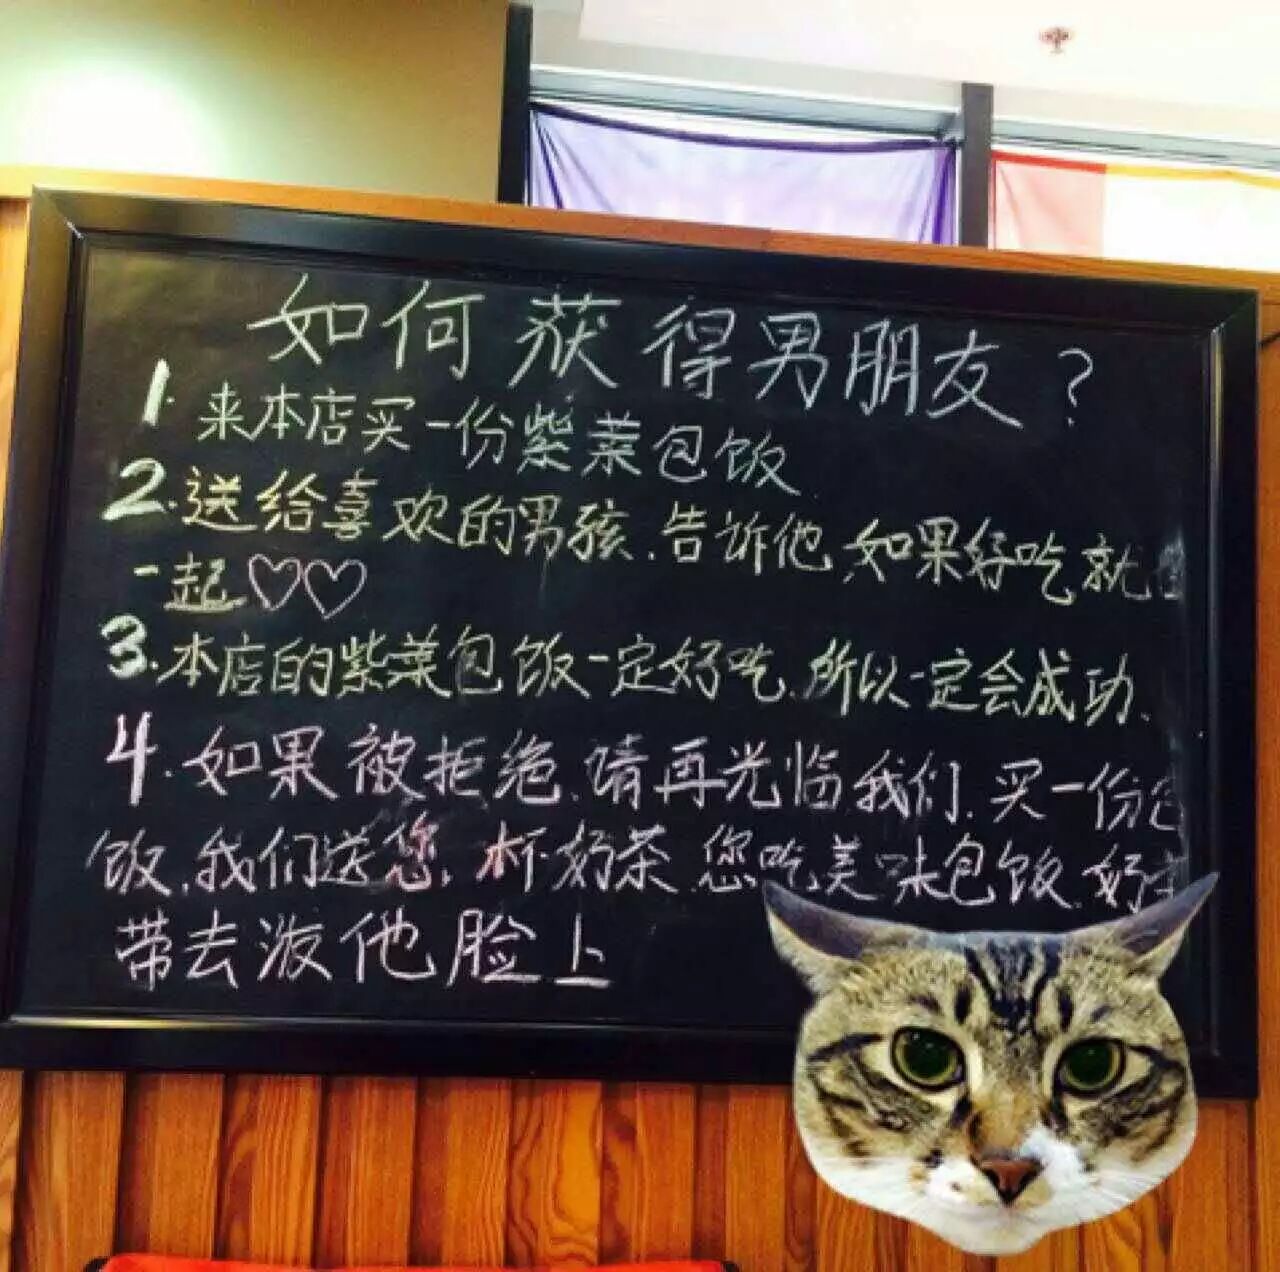 如何获得男朋友?
1.来本店买一份紫菜包饭
2.送给喜欢的男孩.告诉他,如果好吃就
一起♡♡
3.本店的紫菜包饭一定好吃.所以一定会成功.
4.如果被拒绝.请再光临我们.买一份包
饭.我们送您.杯奶茶.您吃美味包饭.奶
带去泼他脸上